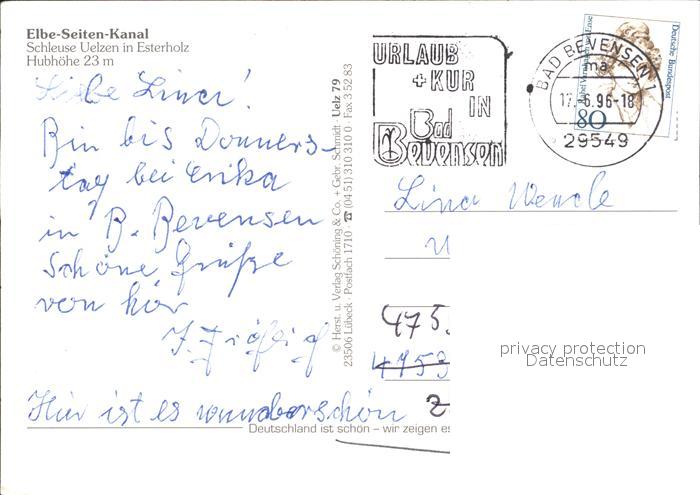 Elbe-Seiten-Kanal
Schleuse Uelzen in Esterholz
Hubhöhe 23 m
Liebe Lina!
Bin bis Donners-
tag bei Erika
in B. Bevensen
Schöne Grüße
von hier
Hier ist es wunderschön
Deutschland ist schön – wir zeigen es
© Herst. u. Verlag Schöning & Co. + Gebr. Schmidt · Uelz 79
23506 Lübeck · Postfach 1710 · ☎ (04 51) 310 310 0 · Fax 3 52 83
URLAUB
+ KUR
IN
Bad
Bevensen
BAD BEVENSEN 1
ma
17.-6.96-18
29549
Deutsche Bundespost
80
Lina
475
4759
privacy protection
Datenschutz